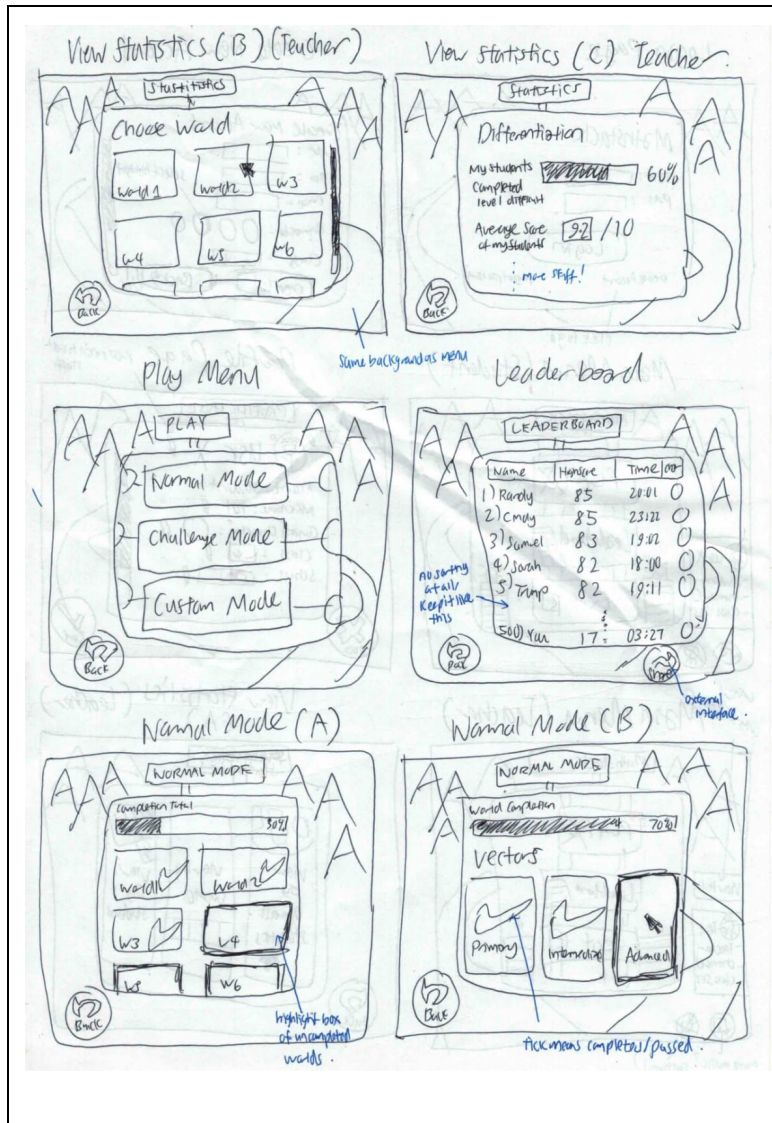 View Statistics (B) (Teacher)
Stastitistics
Choose World
World 1
World 2
W3
W4
W5
W6
Back
Same background as menu
View Statistics (C) Teacher
Statistics
Differentiation
My students
Completed
level different
60%
Average Score
of my students
9.2 /10
more stuff!
Back
Play Menu
PLAY
Normal Mode
Challenge Mode
Custom Mode
Back
Leaderboard
LEADERBOARD
Name Time
1) Randy 85 20:01
2) Cindy 85 23:22
3) Samuel 83 19:02
4) Sarah 82 18:00
5) Trump 82 19:11
500) Yan 17 03:27
no sorting
at all
keep it like
this
Back
external
interface.
Normal Mode (A)
NORMAL MODE
Completion Total
30%
World 1
World 2
W3
W4
W5
W6
Back
highlight box
of uncompleted
worlds.
Normal Mode (B)
NORMAL MODE
World Completion
70%
Vectors
Primary
Intermediate
Advanced
Back
tick means completed/passed.